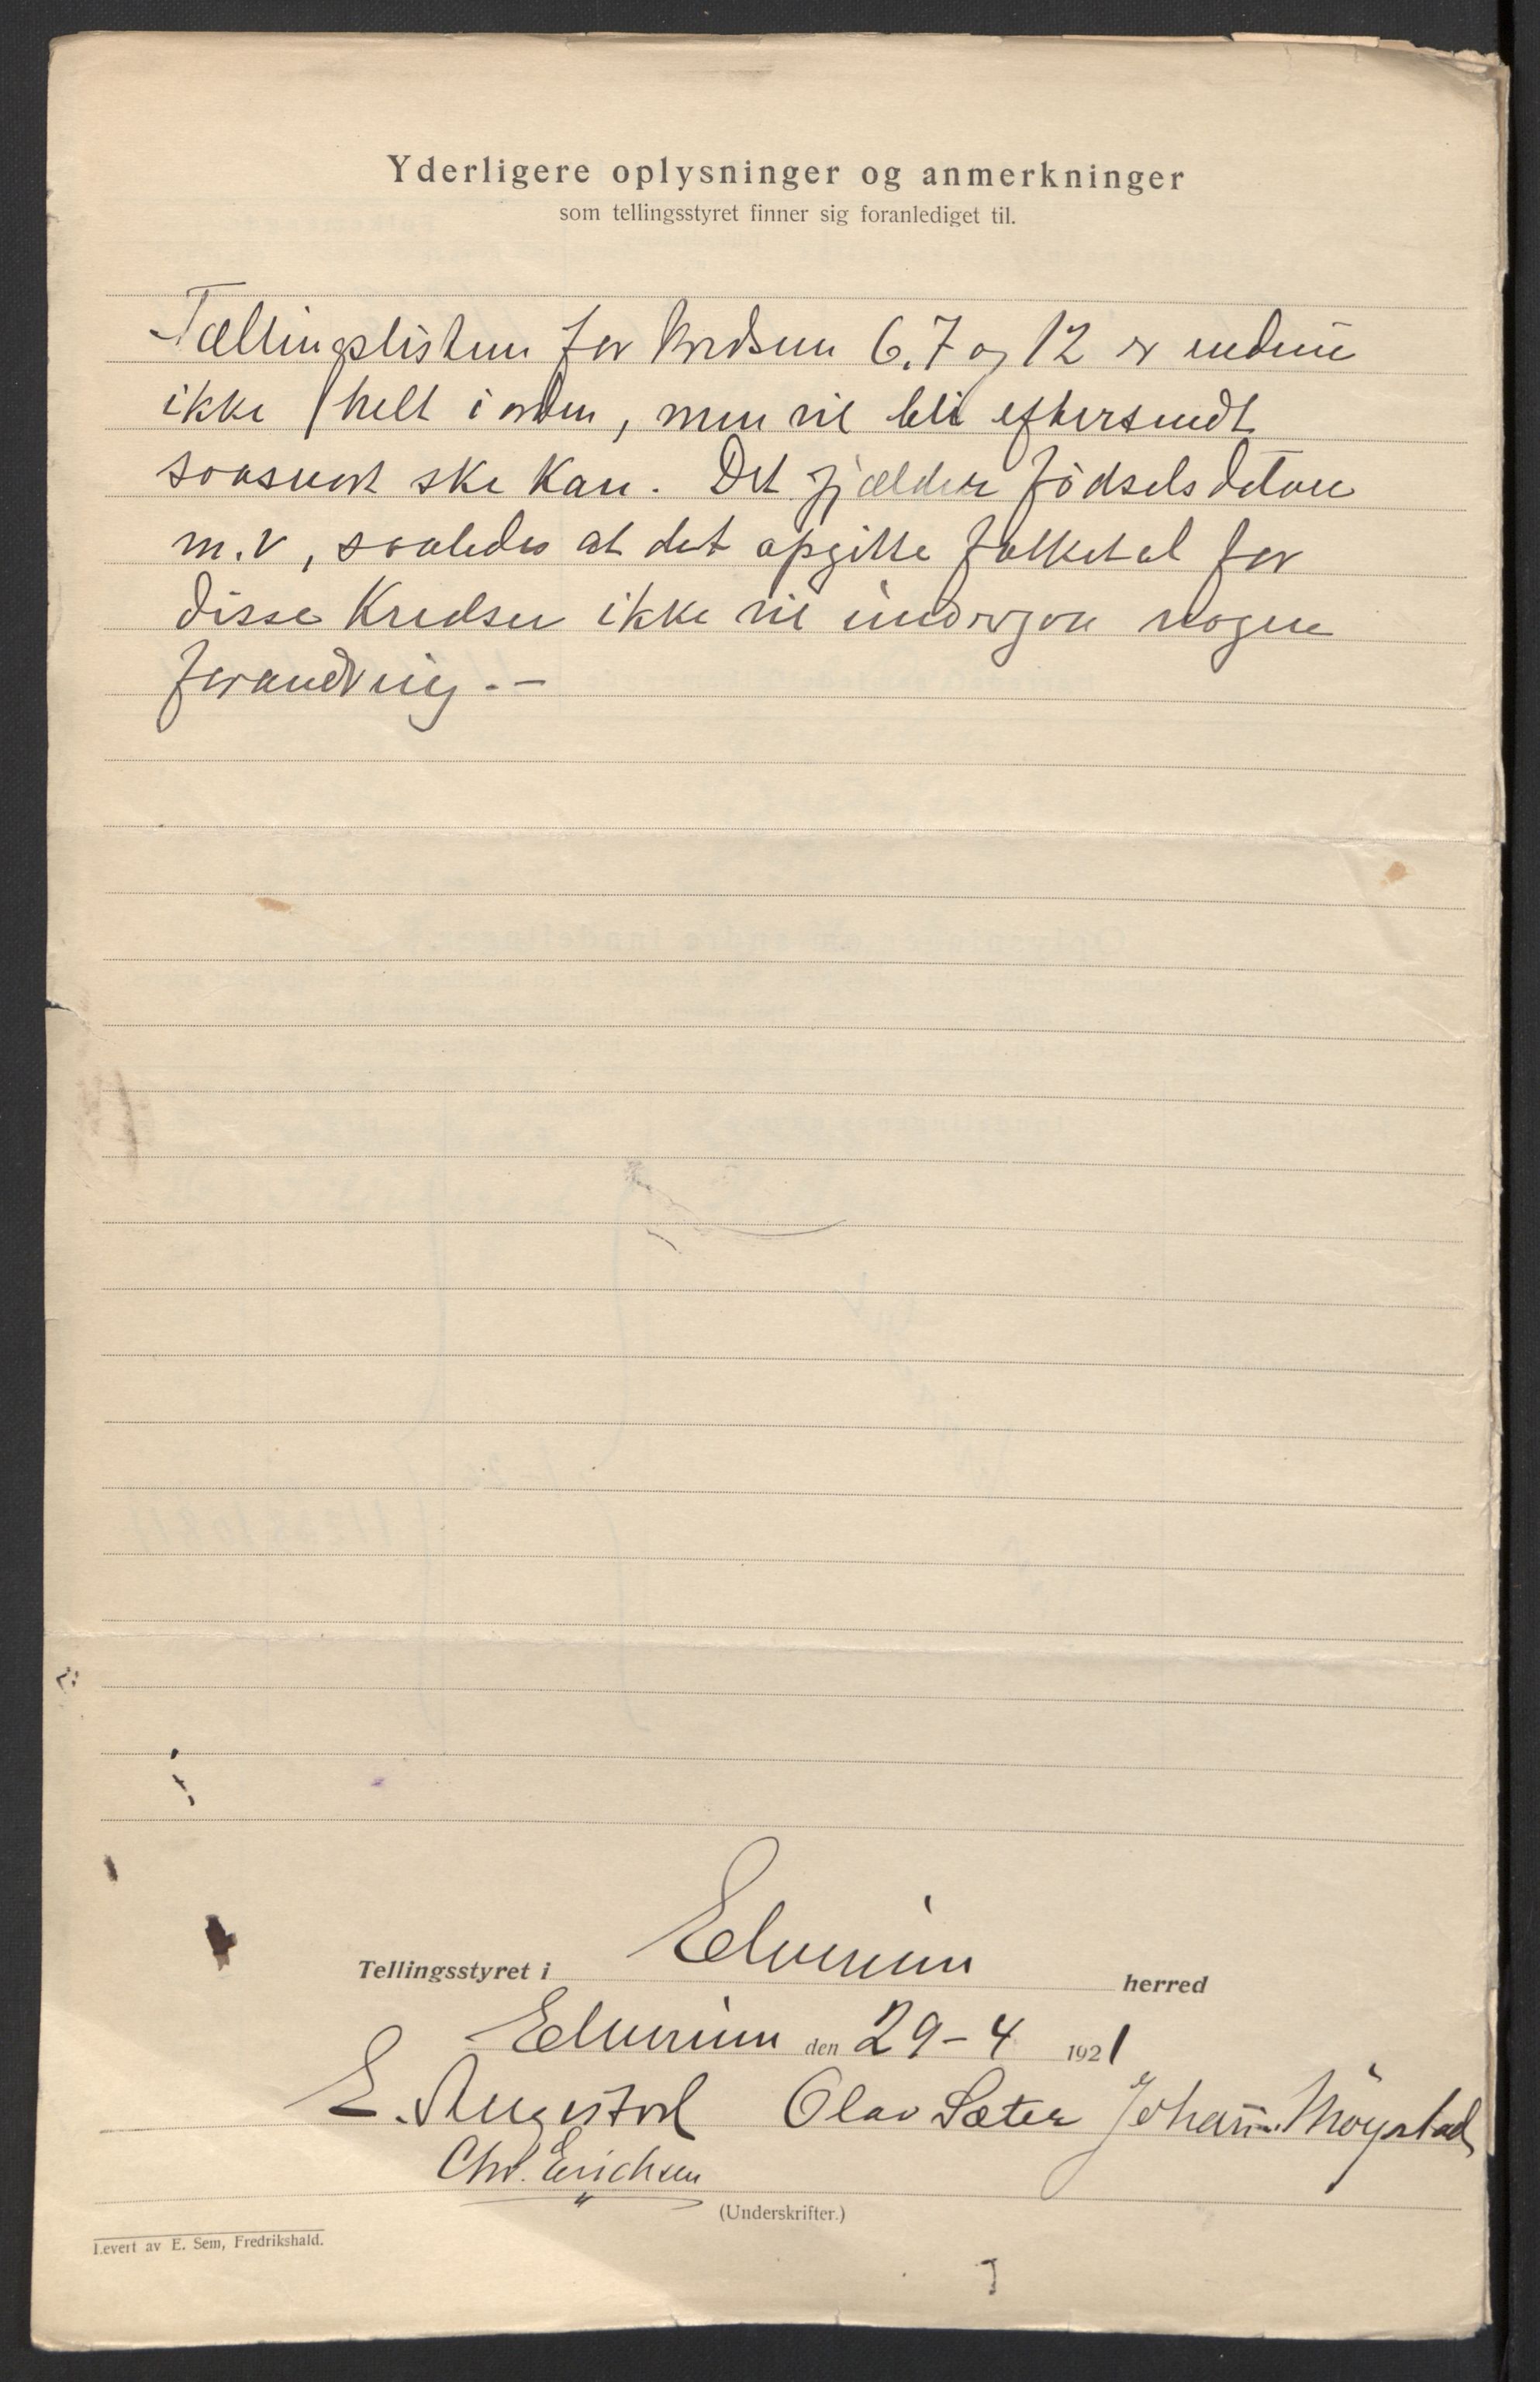 Yderligere oplysninger og anmerkninger
som tellingsstyret finner sig foranlediget til.
Tællingslisten for kredsen 6, 7 og 12 er endnu
ikke helt i orden, men vil bli eftersendt
saasnart ske kan. Det gjælder fødsels datoer
m.v, saaledes at det opgitte folketal for
disse Kredser ikke vil undergaa nogen
forandring.-
Tellingsstyret i Elverum herred
Elverum den 29-4 1921
E. Olav Sæter Johan Møystad
Chr. Erichsen
(Underskrifter.)
Levert av E. Sem, Fredrikshald.